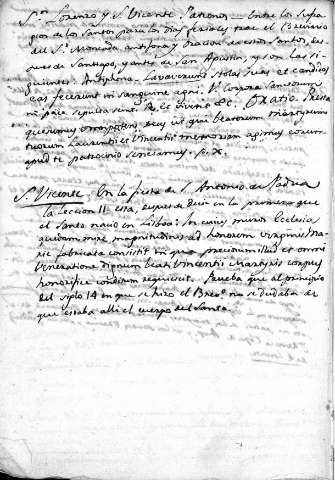 Sn. Lorenzo y S. Vicente Patronos. Entre los sufra-
gios de los Santos para los dias feriales trae el Breviario
del Sr. Moncada, antifona y Oracion de estos Santos, des-
pues de Santiago, y antes de San Agustin, y son las si-
guientes. Antiphona. Laverunt stolas suas et candidas
eas fecerunt in sanguine agni. V. Corpora Sanctorum
in pace sepulta sunt. R. &c. Oratio. Presta
quesumus omnipotens Deus ut qui beatorum martyrum
tuorum Laurentii et Vincentii memoriam agimus eorum
apud te patrocinio sentiamus. p. X.
S. Vicente. En la fiesta de S. Antonio de Padua
la Leccion II esta, despues de decir en la primera que
el Santo nació en Lisboa: In cuius muros Ecclesia
quedam mire magnitudinis ad honorem virginis Ma-
rie fabricata consistit in qua preciosum illud et omni
Veneratione dignum beati Vincentii Martyris corpus
honorifice conditum requiescit. Prueba que al principio
del siglo 14 en que se hizo el Brevo. no se dudaba de
que estaba alli el cuerpo del Santo.